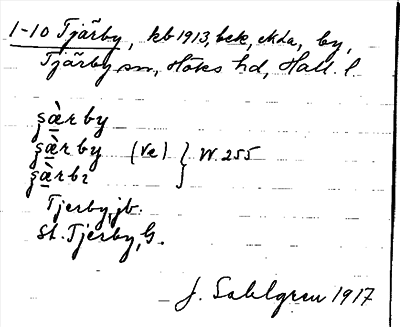 1-10 Tjärby, kb 1913, bek, ekda, by,
Tjärby sn, Höks hd, Hall. l.
ʂæ̀rby
ʂæ̀rby (ve) } W. 255
ʂæ̀rbɪ
Tjerby, jb.
St. Tjerby, G.
J. Sahlgren 1917